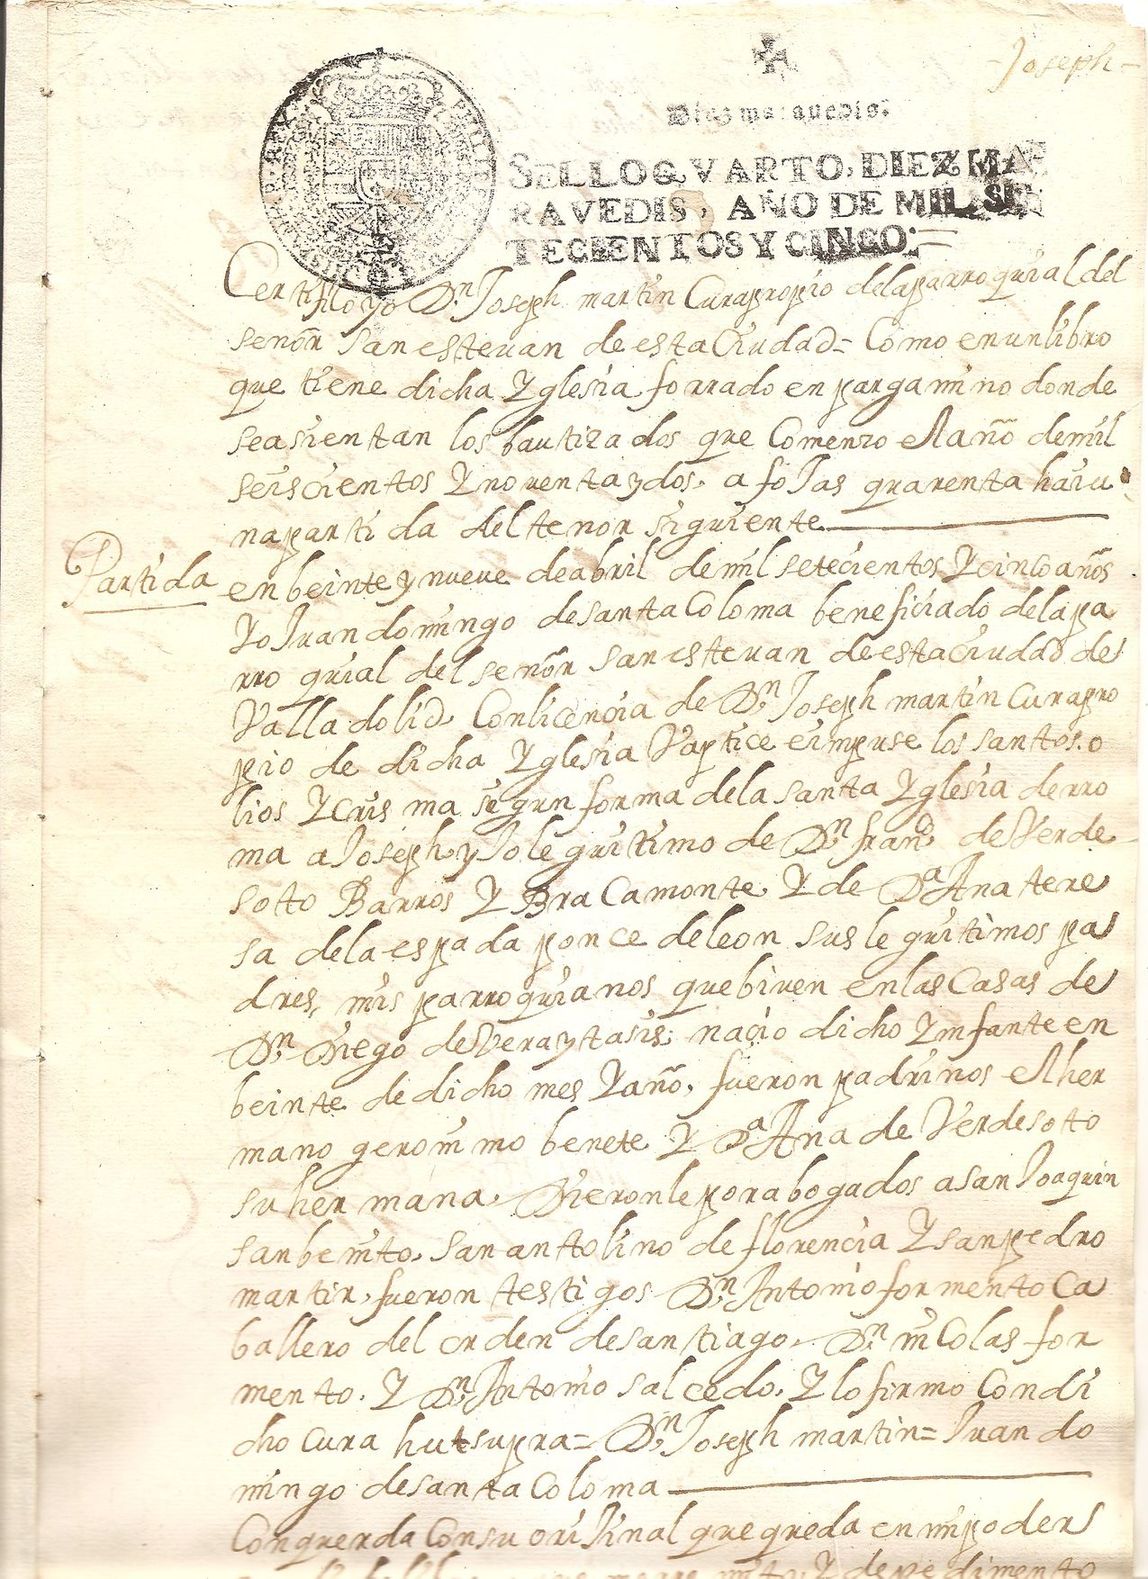 Joseph
Diez marauedis.
SELLO QVARTO, DIEZ MA
RAVEDIS, AÑO DE MIL SE
TECIENTOS Y CINCO:
Certifico yo Dn Joseph martin Cura propio dela parroquial del
señor san esteuan de esta Ciudad = Como en un libro
que tiene dicha Yglesia forrado en pargamino donde
se asientan los bautizados que Comenzo el año de mil
seiscientos Y noventa y dos, a foJas quarenta hai u
na partida del tenor siguiente
Partida
en beinte y nueve de abril de mil setecientos Y cinco años
Yo Juan domingo de santa Coloma beneficiado de la pa
rroquial del señor san esteuan de esta Ciudad de
Valladolid, Con licencia de Dn Joseph martin cura pro
pio de dicha Yglesia Vaptice e impuse los santos o
lios Y crisma segun forma de la santa Yglesia de rro
ma a Joseph, yJo leguitimo de Dn franco de Verde
sotto Barros Y BraCamonte, Y de Da Ana tere
sa de la espada ponce de leon sus leguitimos pa
dres, mis parroquianos que biven en las Casas de
Dn Diego de Vera y tasis; nacio dicho Ynfante en
beinte de dicho mes Y año, fueron padrinos el her
mano geronimo benete Y Da Ana de Verdesotto
su hermana, Dieronle por abogados a san Joaquin
san benito, san antolino de florencia Y san pedro
martir, fueron testigos Dn Antonio formento Ca
ballero del orden de santiago, Dn niColas for
mento, Y Dn Antonio salcedo, Y lo firmo Con di
cho cura hut supra = Dn Joseph martin = Juan do
mingo de santa Coloma
Conquerda Con su oriJinal que queda en mi poder